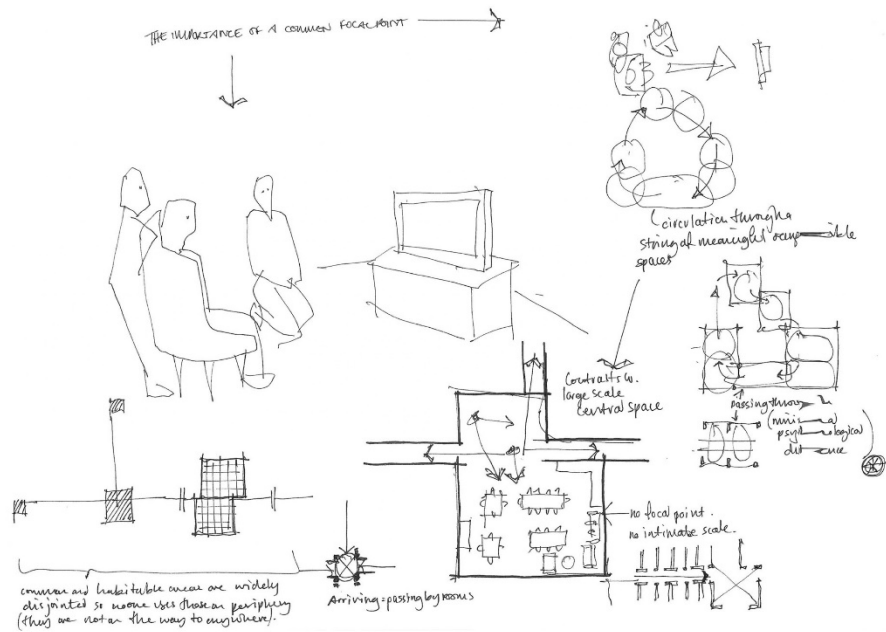 THE IMPORTANCE OF A COMMON FOCAL POINT
circulation through a
string of meaningful
spaces
Contrasts w.
large scale
central space
passing through
(minimal
psychological
distance
no focal point.
no intimate scale.
common and habitable areas are widely
disjointed so noone uses those on periphery
(they are not on the way to anywhere).
Arriving = passing by rooms